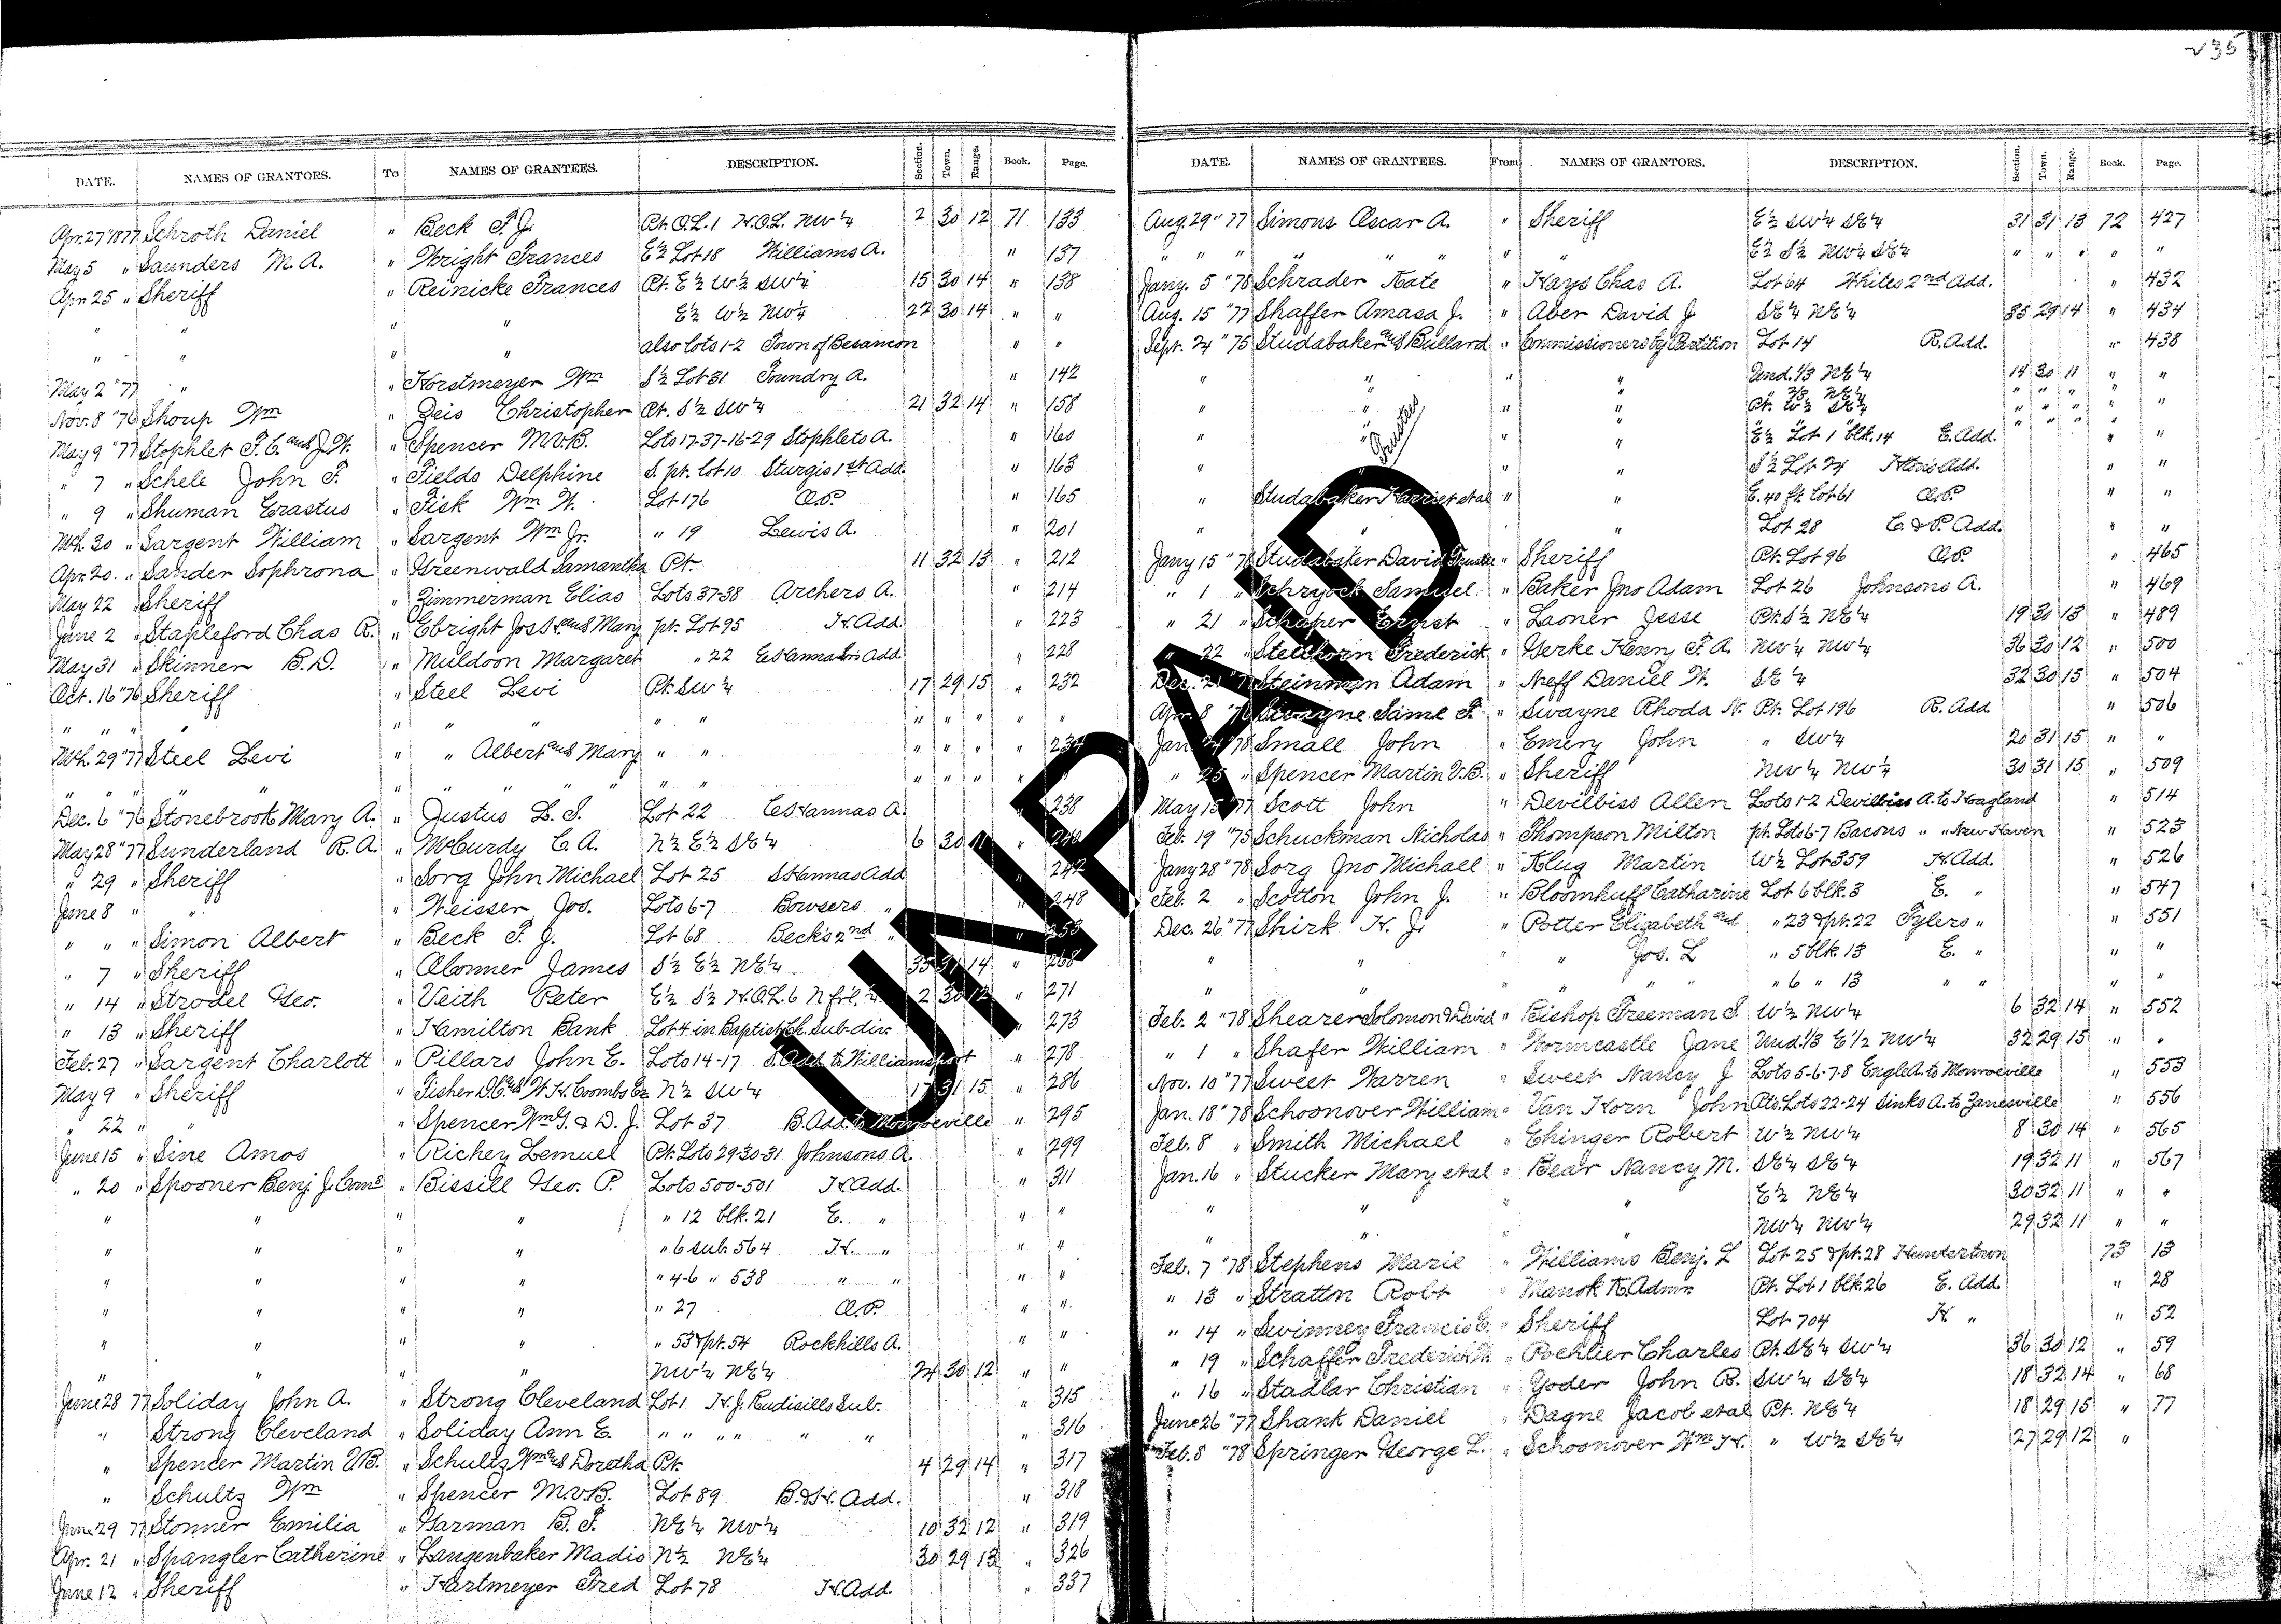 235
DATE. NAMES OF GRANTORS. To NAMES OF GRANTEES. DESCRIPTION. Section. Town. Range. Book. Page.
Apr. 27 1877 Schroth Daniel " Beck F. J. Pt. O.L. 1 H.O.L. NW¼ 2 30 12 71 133
May 5 " Saunders M. A. " Wright Frances E½ Lot 18 Williams A. " 137
Apr. 25 " Sheriff " Reinicke Frances Pt. E½ W½ SW¼ 15 30 14 " 138
" " " " E½ W½ NW¼ 22 30 14 " "
" " " " also lots 1-2 Town of Besancon " "
May 2 "77 " " Horstmeyer Wm S½ Lot 31 Foundry A. " 142
Nov. 8 "76 Shoup Wm " Zeis Christopher Pt. S½ SW¼ 21 32 14 " 158
May 9 "77 Stophlet F. C. and J. W. " Spencer M.V.B. Lots 17-37-16-29 Stophlets A. " 160
" 7 " Schele John F. " Fields Delphine S. pt. lot 10 Sturgis 1st Add. " 163
" 9 " Shuman Erastus " Fisk Wm W. Lot 176 O.P. " 165
Mch. 30 " Sargent William " Sargent Wm Jr. " 19 Lewis A. " 201
Apr. 20. " Sander Sophrona " Greenwald Samantha Pt. 11 32 13 " 212
May 22 Sheriff " Zimmerman Elias Lots 37-38 Archers A. " 214
June 2 " Stapleford Chas R. " Ebright Jos H. and Mary pt. Lot 95 H. Add. " 223
May 31 " Skinner B. D. " Muldoon Margaret " 22 E Hanna Srs Add. " 228
Oct. 16 "76 Sheriff " Steel Levi Pt. SW¼ 17 29 15 " 232
" " " " " " " " " " " " " "
Mch. 29 "77 Steel Levi " " Albert and Mary " " " " " " 234
" " " " " " " " " " " " " "
Dec. 6 "76 Stonebrook Mary A. " Justus L. S. Lot 22 E Hannas A. " 238
May 28 "77 Sunderland R. A. " McCurdy C. A. N½ E½ SE¼ 6 30 11 " 240
" 29 " Sheriff " Sorg John Michael Lot 25 S Hannas Add " 242
June 8 " " " Weisser Jos. Lots 6-7 Bowsers " " 248
" " " Simon Albert " Beck F. J. Lot 68 Becks 2nd " " 253
" 7 " Sheriff " OConner James S½ E½ NE¼ 35 31 14 " 268
" 14 " Strodel Geo. " Veith Peter E½ S½ H.O.L. 6 N frl. ¼ 2 30 12 " 271
" 13 " Sheriff " Hamilton Bank Lot 4 in Baptist Ch. Sub-div. " 273
Feb. 27 " Sargent Charlott " Pillars John E. Lots 14-17 S. Add to Williamsport " 278
May 9 " Sheriff " Fisher D.C. and W. H. Coombs Ex N½ SW¼ 17 31 15 " 286
" 22 " " " Spencer Wm G. & D. J. Lot 37 B. Add. to Monroeville " 295
June 15 " Sine Amos " Richey Lemuel Pt. Lots 29-30-31 Johnsons A. " 299
" 20 " Spooner Benj J. Coms " Bissill Geo. P. Lots 500-501 H. Add. " 311
" " " " " 12 blk. 21 E. " " "
" " " " " 6 sub. 564 H. " " "
" " " " " 4-6 " 538 " " " "
" " " " " 27 O.P. " "
" " " " " 53 & pt. 54 Rockhills A. " "
" " " " NW¼ NE¼ 24 30 12 " "
June 28 77 Soliday John A. " Strong Cleveland Lot 1 H. J. Rudisills Sub. " 315
" Strong Cleveland " Soliday Ann E. " " " " " " " 316
" Spencer Martin V.B. " Schultz Wm and Doretha Pt. 4 29 14 " 317
" Schultz Wm " Spencer M.V.B. Lot 89 B. & H. Add. " 318
June 29 77 Stonner Emilia " Garman B. F. NE¼ NW¼ 10 32 12 " 319
Apr. 21 " Spangler Catherine " Langenbaker Madis N½ NE¼ 30 29 13 " 326
June 12 " Sheriff " Hartmeyer Fred Lot 78 H. Add. " 337
DATE. NAMES OF GRANTEES. From NAMES OF GRANTORS. DESCRIPTION. Section. Town. Range. Book. Page.
Aug. 29 "77 Simons Oscar A. " Sheriff E½ SW¼ SE¼ 31 31 13 72 427
" " " " " " " " E½ S½ NW¼ SE¼ " " " " "
Jany. 5 "78 Schrader Kate " Hays Chas A. Lot 64 Whites 2nd Add. " 432
Aug. 15 "77 Shaffer Amasa J. " Aber David J. SE¼ NE¼ 35 29 14 " 434
Sept. 24 "75 Studabaker and Bullard " Commissioners by Partition Lot 14 R. Add. " 438
" " " " Und. 1/3 NE¼ 14 30 11 " "
" 2/3 NE¼ " " " "
" " " " Pt. W½ SE¼ " " " " "
" Trustees " " E½ Lot 1 blk. 14 E. Add. " "
" " " " S½ Lot 24 Add. " "
" Studabaker Harriet etal " " E. 40 ft. Lot 61 O.P. " "
" " " " Lot 28 C. & P. Add. " "
Jany 15 "78 Studabaker David Trustee " Sheriff Pt. Lot 96 O.P. " 465
" 1 " Schryock Samuel " Baker Jno Adam Lot 26 Johnsons A. " 469
" 21 " Schaper Ernst " Laoner Jesse Pt. S½ NE¼ 19 30 13 " 489
" 22 " Stellhorn Frederick " Gerke Henry F. A. NW¼ NW¼ 36 30 12 " 500
Dec. 21 "77 Steinman Adam " Neff Daniel W. SE¼ 32 30 15 " 504
Apr. 8 "76 Swayne Same F. " Swayne Rhoda N. Pt. Lot 196 R. Add " 506
Jan. 24 "78 Small John " Emery John " SW¼ 20 31 15 " "
" 25 " Spencer Martin V.B. " Sheriff NW¼ NW¼ 30 31 15 " 509
May 15 "77 Scott John " Devilbiss Allen Lots 1-2 Devilbiss A. to Hoagland " 514
Feb. 19 "75 Schuckman Nicholas " Thompson Milton pt. Lots 6-7 Bacons " " New Haven " 523
Jany 28 "78 Sorg Jno Michael " Klug Martin W½ Lot 359 H. Add. " 526
Feb. 2 " Scotton John J. " Bloomhuff Catharine Lot 6 blk. 3 E. " " 547
Dec. 26 "77 Shirk H. J. " Potter Elizabeth and " 23 & pt. 22 Tylers " " 551
" " " " Jos. L " 5 blk. 13 E. " " "
" " " " " " " 6 " 13 " " " "
Feb. 2 "78 Shearer Solomon & David " Bishop Freeman S. W½ NW¼ 6 32 14 " 552
" 1 " Shafer William " Wormcastle Jane Und. 1/3 E 1/2 NW¼ 32 29 15 " "
Nov. 10 "77 Sweet Warren " Sweet Nancy J Lots 5-6-7-8 Engle A. to Monroeville " 553
Jan. 18 "78 Schoonover William " Van Horn John Pts. Lots 22-24 Sinks A. to Zanesville " 556
Feb. 8 " Smith Michael " Ehinger Robert W½ NW¼ 8 30 14 " 565
Jan. 16 " Stucker Mary etal " Bear Nancy M. SE¼ SE¼ 19 32 11 " 567
" " " E½ NE¼ 30 32 11 " "
" " NW¼ NW¼ 29 32 11 " "
Feb. 7 "78 Stephens Marie " Williams Benj. L Lot 25 & pt. 28 Huntertown 73 13
" 13 " Stratton Robt " Manok K. Admr. Pt. Lot 1 blk. 26 E. Add. " 28
" 14 " Swinney Francis E. " Sheriff Lot 704 H. " " 52
" 19 " Schaffer Frederick W. " Poehlier Charles Pt. SE¼ SW¼ 36 30 12 " 59
" 16 " Stadlar Christian " Yoder John R. SW¼ SE¼ 18 32 14 " 68
June 26 "77 Shank Daniel " Dagne Jacob etal Pt. NE¼ 18 29 15 " 77
Feb. 8 "78 Springer George L. " Schoonover Wm H. " W½ SE¼ 27 29 12 "
UNPAID